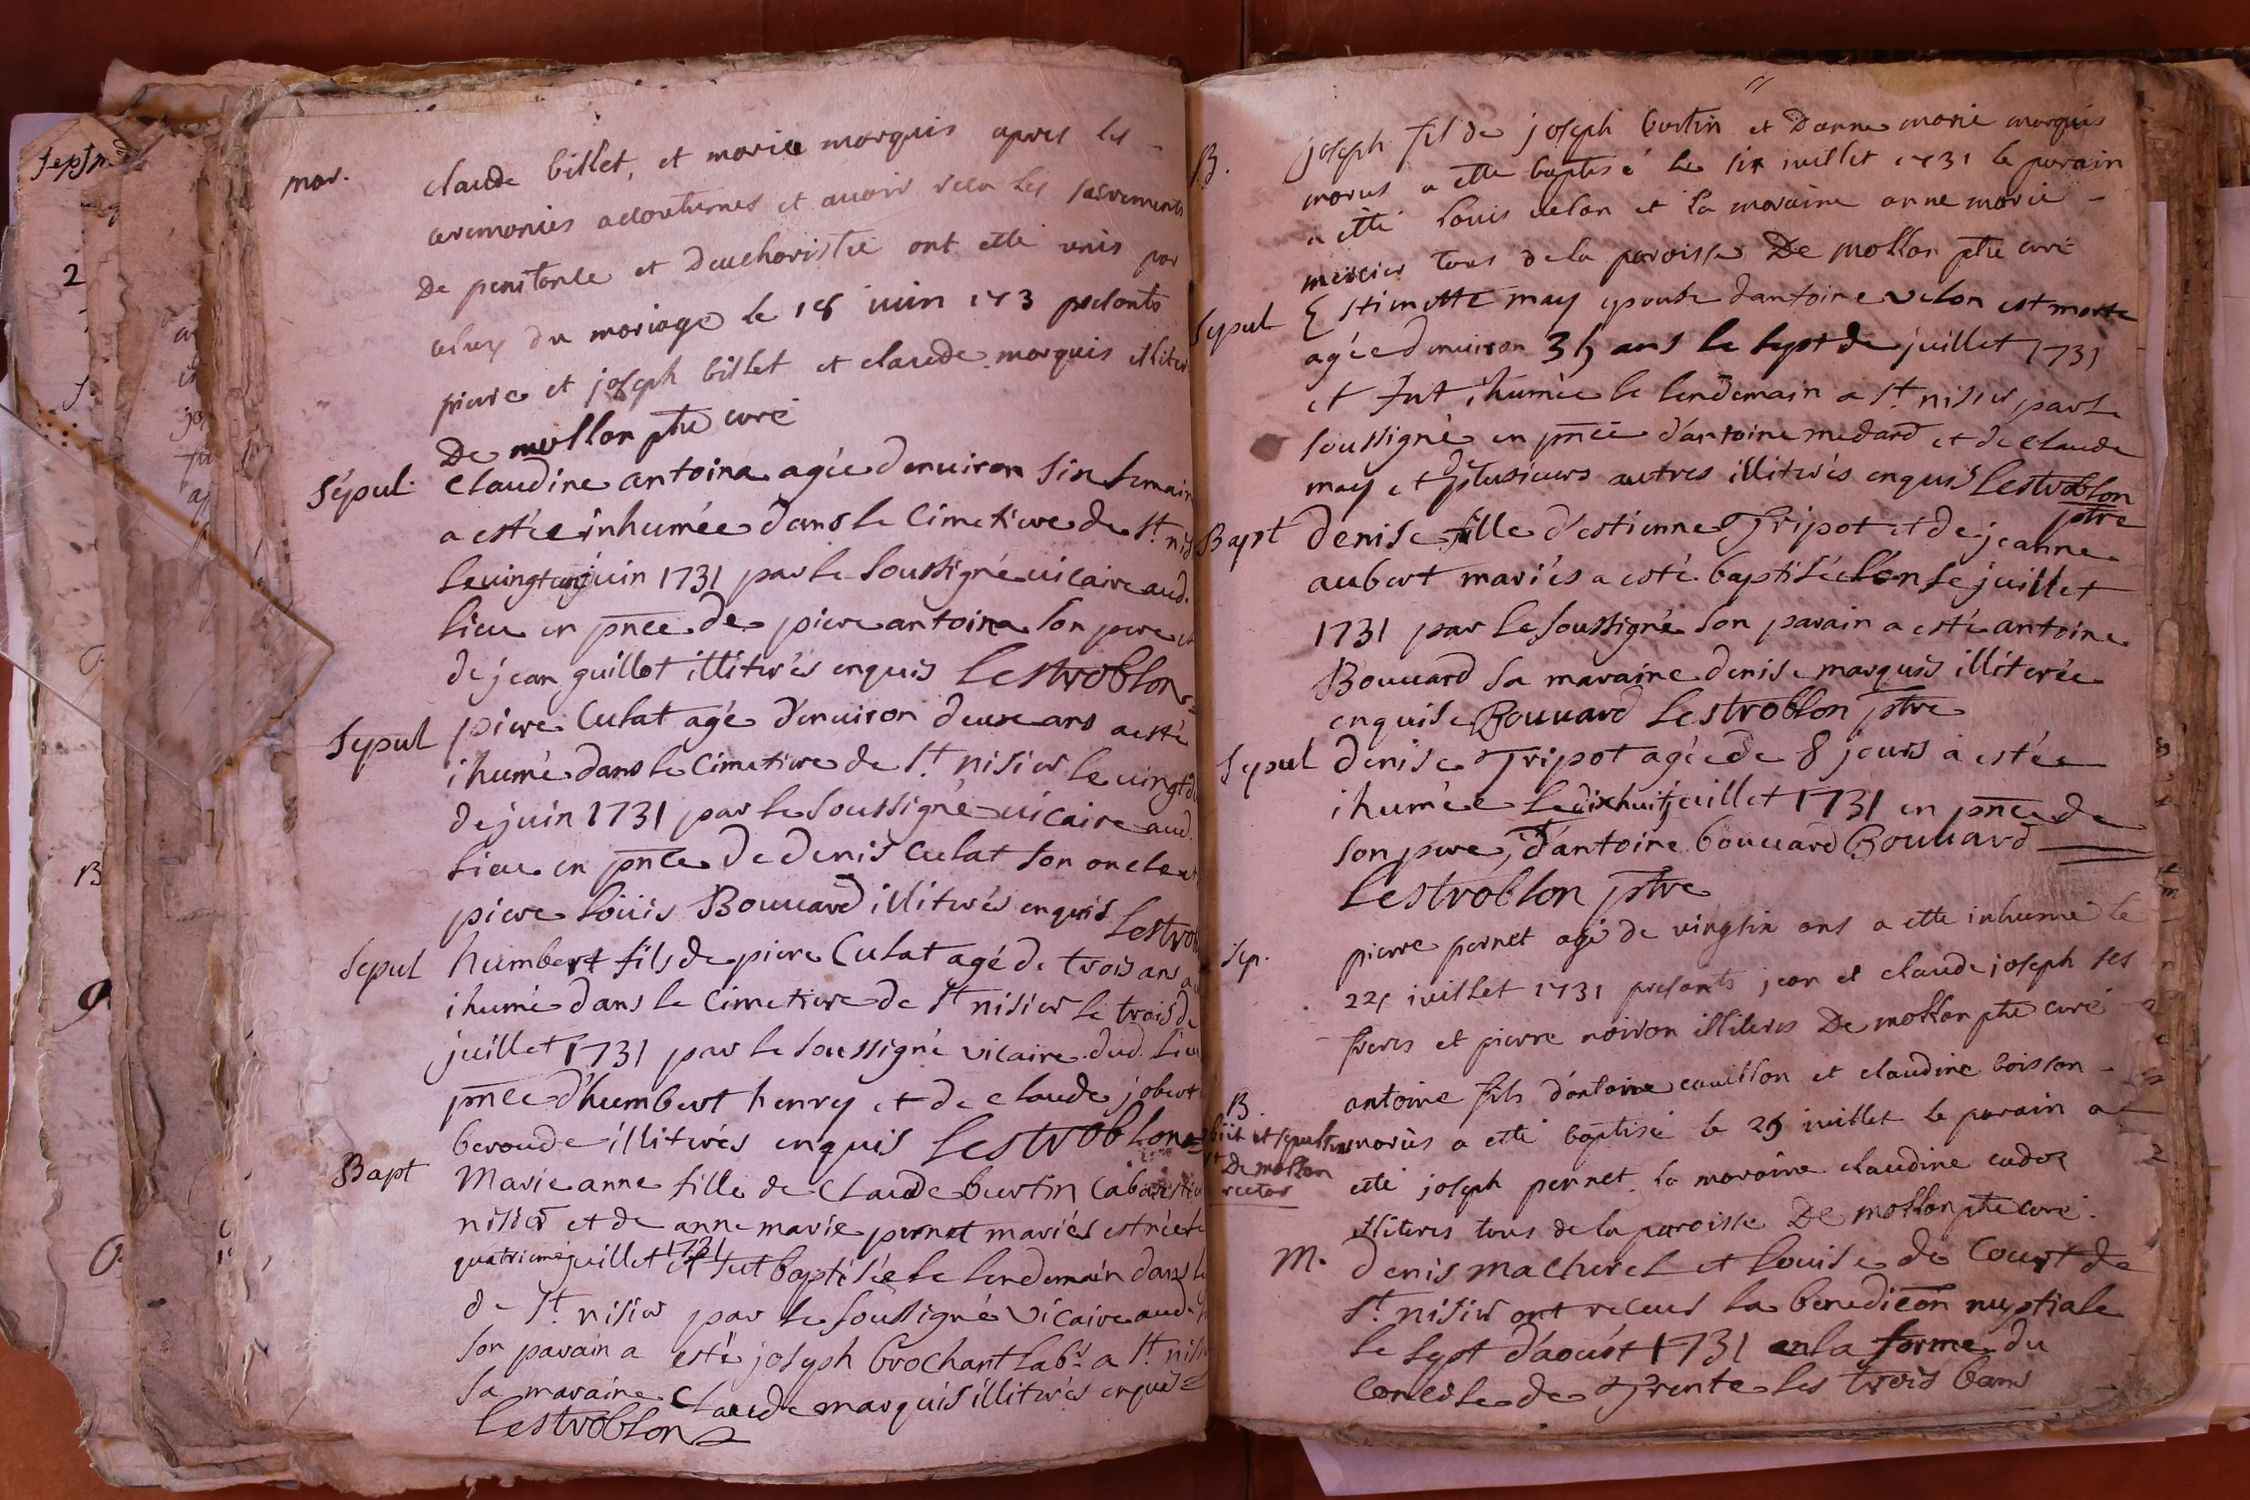 mar.
claude billet, et marie marquis apres les
ceremonies accoutumes et auoir recu les sacrements
De penitence et deucharistie ont etté unis par
celuy du mariage le 18 iuin 173 presents
pierre et joseph billet et claude marquis illiter
De mollon ptre curé
Sépul.
claudine antoina agée denuiron six semain
a estée inhumée dans le cimetiere de St. nis
le vingt cinq juin 1731 par le soussigné uicaire aud.
lieu en pnce de piere antoina son pere et
de jean guillot illiterés enquis Lestroblon
Sepul
piere Culat agé denuiron deux ans a esté
ihumé dans le cimetiere de St. nisier le uingt
de juin 1731 par le soussigné uicaire aud.
lieu en pnce de denis culat son oncle et
piere loüis Bouuard illiterés enquis Lestro
Sepul
humbert fils de piere Culat agé de trois ans a
ihumé dans le cimetiere de St nisier le trois de
juillet 1731 par le soussigné vicaire dud. lieu
pnce d'humbert henry et de claude jobert
beroude illiterés enquis Lestroblon
Bapt
Marie anne fille de Claude burtin cabaretier
nisier et de anne marie pernet mariés est née le
quatrieme juillet 1731 et fut baptisée le lendemain dans l
de St. nisier par le soussigné vicaire aud.
son parain a esté joseph brochant labr a St. nisi
sa maraine Claude marquis illiterés enquis
Lestroblon
B.
joseph fil de joseph burtin et danne marie marquis
maries a etté baptisé le six iuillet 1731 le parain
a etté louis velon et la maraine anne marie
mercier tous de la paroisse De mollon ptre curé
Sepul
Estienette may epouse dantoine velon est morte
agée denuiron 35 ans le sept de juillet 1731
et fut ihumée le lendemain a St. nisier par le
soussigné en pnce d'antoine medard et de claude
may et de plusieurs autres illiterés enquis Lestroblon
ptre
Bapt
denise fille d'estienne Tripot et de jeanne
aubert mariés a esté baptisée l'onse juillet
1731 par le soussigné son parain a esté antoine
Bouuard sa maraine denise marquis illiterée
enquise Bouuard Lestroblon ptre
Sepul
denise Tripot agée de 8 jours a estée
ihumée le dixhuit juillet 1731 en pnce de
son pere, d'antoine bouuard Bouuard
Lestroblon ptre
Sep.
pierre pernet agé de vingsix ans a etté inhumé le
22 iuillet 1731 presants jean et claude joseph ses
freres et pierre noiron illiteres De mollon ptre curé
B.
antoine fils d'antoine cauillon et claudine boisson
mariés a etté baptisé le 25 iuillet le parain a
obiit et sepultus
De mollon
rector
etté joseph pernet la maraine claudine cadoz
illiteres tous de la paroisse De mollon ptre curé.
M.
denis macheret et louise de Court de
St. nisier ont receus la benediction nuptiale
le sept d'aoust 1731 en la forme du
concile de Trente les trois bans